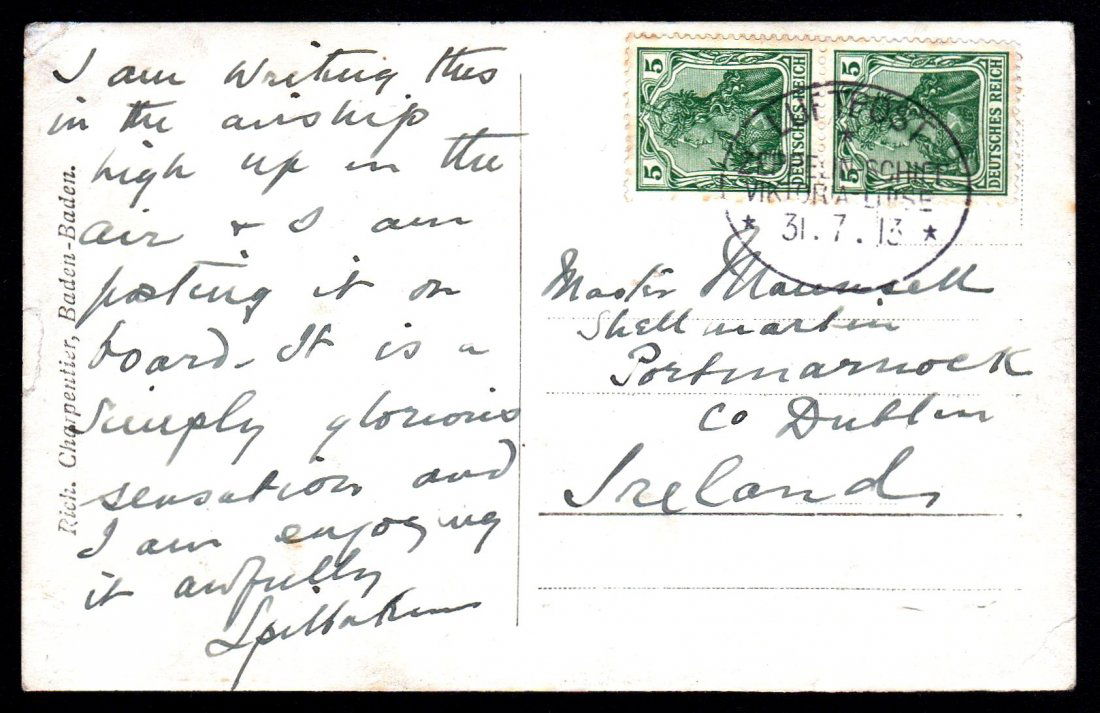 I am writing this
in the airship
high up in the
air + I am
posting it on
board. It is a
simply glorious
sensation and
I am enjoying
it awfully
Rich. Charpentier, Baden-Baden.
5
DEUTSCHES REICH
5
DEUTSCHES REICH
LUFTPOST
*
ZEPPELIN-SCHIFF
VIKTORIA-LUISE
* 31.7.13 *
Master Maunsell
Shellmartin
Portmarnock
Co Dublin
Ireland